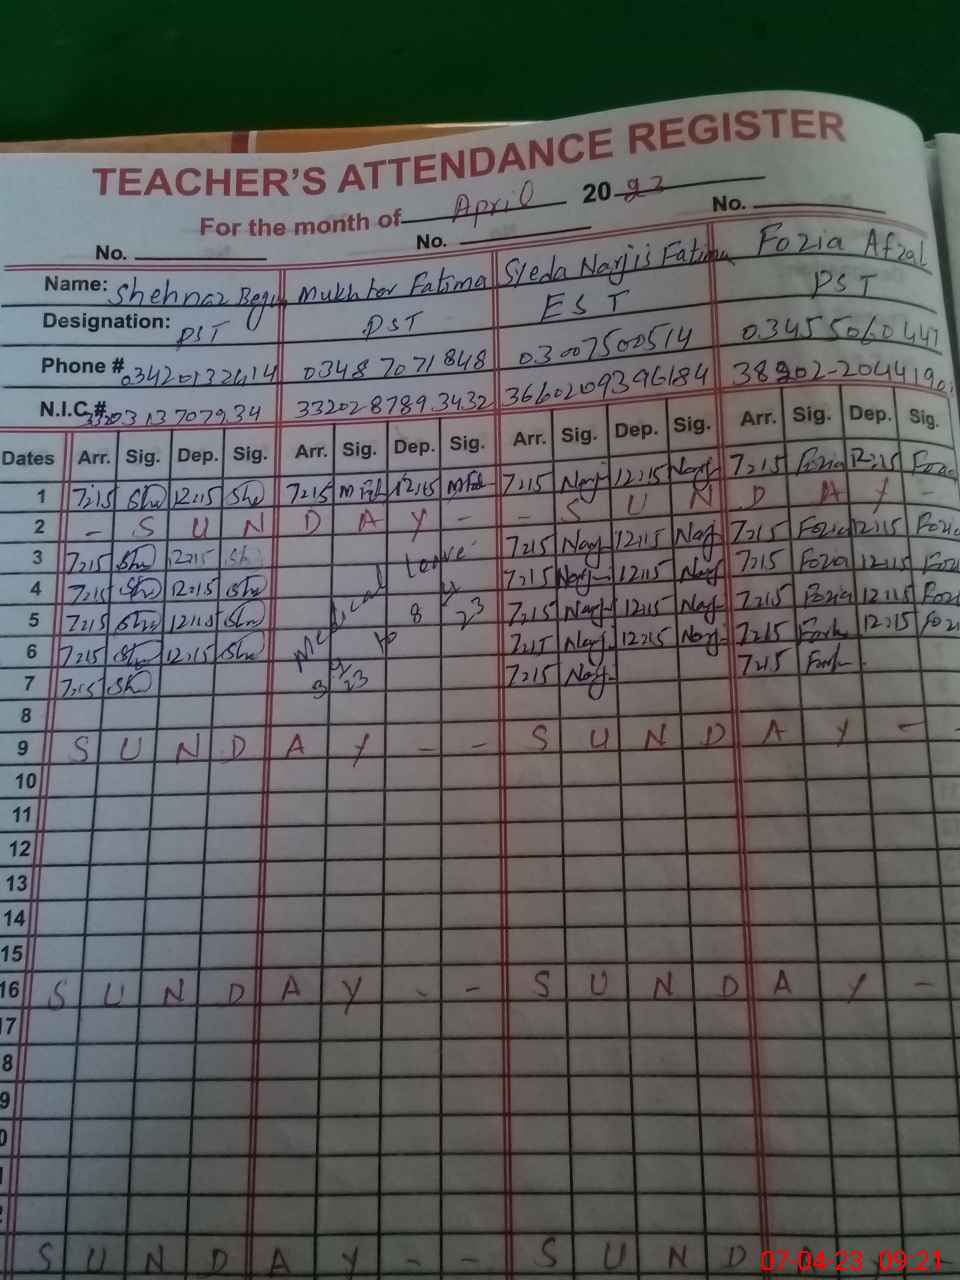 TEACHER'S ATTENDANCE REGISTER
For the month of April 2023
No. No. No.
Name: Shehnaz Begum Mukhtar Fatima Syeda Narjis Fatima Fozia Afzal
Designation: PST PST EST PST
Phone # 03420132414 0348 7071848 03007500514 03455060447
N.I.C.# 3320287893432 3660209396184
Dates Arr. Sig. Dep. Sig. Arr. Sig. Dep. Sig. Arr. Sig. Dep. Sig. Arr. Sig. Dep. Sig.
1 7:15 She 12:15 She 7:15 12:15 7:15 Narj 12:15 Narj 7:15 Fozia 12:15 Fozia
2 - S U N D A Y - - S U N D A Y -
3 7:15 She 12:15 Sh 7:15 Narj 12:15 Narj 7:15 Fozia 12:15 Fozia
4 7:15 She 12:15 She Medical Leave 7:15 Narj 12:15 Narj 7:15 Fozia 12:15 Fozia
5 7:15 She 12:15 She 3 4 23 to 8 4 23 7:15 Narj 12:15 Narj 7:15 Fozia 12:15 Fozia
6 7:15 She 12:15 She 7:15 Narj 12:15 Narj 7:15 12:15 Fozia
7 7:15 She 7:15 Narj 7:15
8
9 S U N D A Y - - S U N D A Y - -
10
11
12
13
14
15
16 S U N D A Y - - S U N D A Y -
17
8
9
0
1
2
S U N D A Y - - S U N D
07-04-23 09:21